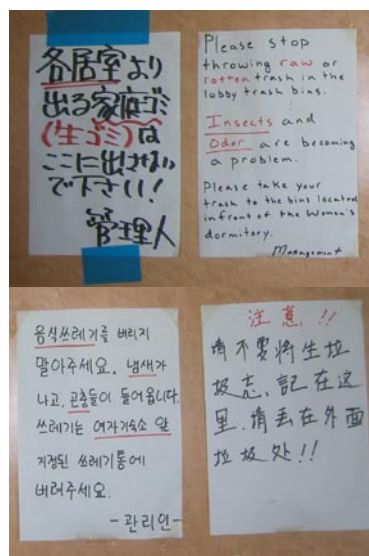 各居室より
出る家庭ゴミ
(生ゴミ)は
ここに出さない
で下さい!
管理人
Please stop
throwing raw or
rotten trash in the
lobby trash bins.
Insects and
Odor are becoming
a problem.
Please take your
trash to the bins located
infront of the Women's
dormitory.
Management
음식쓰레기를 버리지
말아주세요. 냄새가
나고, 곤충들이 들어옵니다.
쓰레기는 여자기숙소 앞
지정된 쓰레기통에
버려주세요.
-관리인-
注意!!
请不要将生垃
圾忘,記在这
里.请丢在外面
垃圾处!!